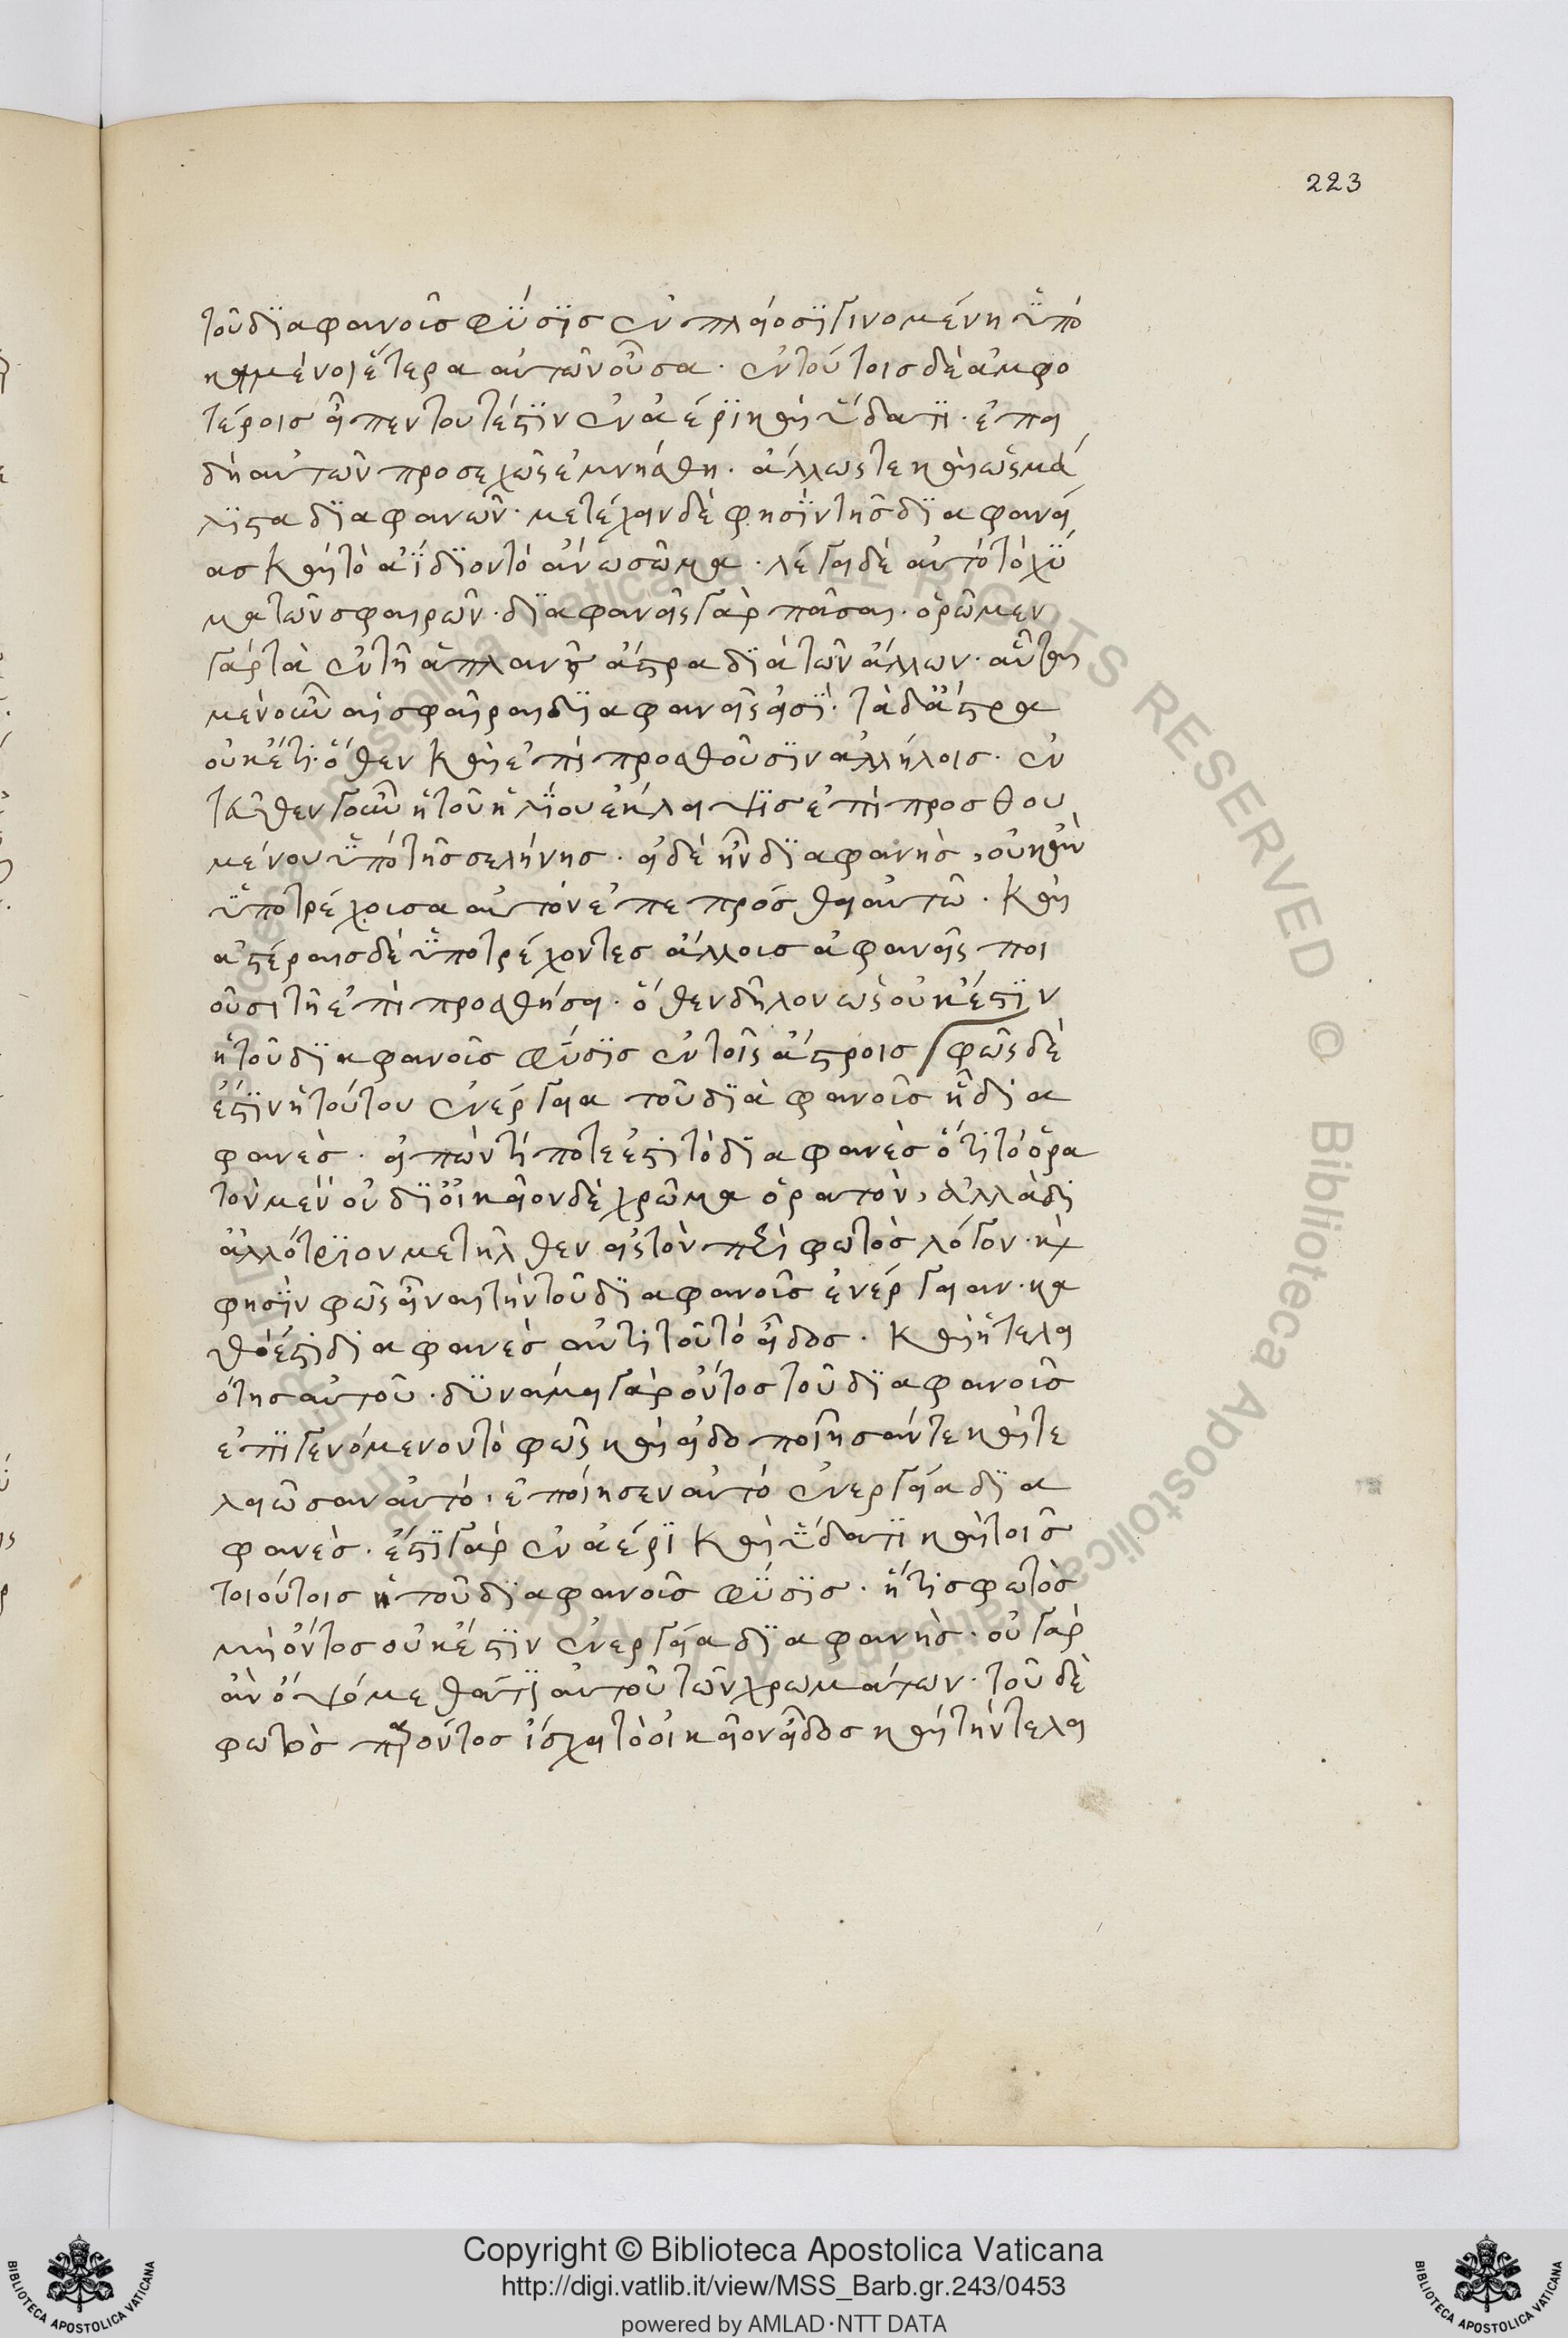 223
τοῦ διαφανοῦς φύσϊς ἐν πλείοσϊ γινομένη ὑπο
κειμένοις ἑτέρα αὐτῶν οὖσα· ἐν τούτοις δὲ ἀμφο
τέροις εἶπεν τουτέστϊν ἐν ἀέρϊ καὶ ὕδατϊ· ἐπει
δὴ αὐτῶν προσεχῶς ἐμνήσθη· ἄλλως τε καὶ ὡς μά
λϊστα δϊαφανῶν· μετέχειν δὲ φησὶν τῆς δϊαφανεί
ας καὶ τὸ ἀΐδϊον τὸ ἄνω σῶμα· λέγει δὲ αὐτὸ τὸ χύ
μα τῶν σφαιρῶν· δϊαφανεῖς γὰρ πᾶσαι· ὁρῶμεν
γὰρ τὰ ἐν τῇ ἀπλανεῖ ἄστρα δϊὰ τῶν ἄλλων· αὗται
μὲν οὖν αἱ σφαῖραι δϊαφανεῖς εἰσϊ· τὰ δ' ἄστρα
οὐκέτι· ὅθεν καὶ ἐπιπροσθοῦσϊν ἀλλήλοις· ἐν
τεῦθεν γοῦν ἡ τοῦ ἡλΐου ἔκλειψϊς ἐπιπροσθου
μένου ὑπὸ τῆς σελήνης· εἰ δὲ ἦν δϊαφανὴς, οὐκ ἂν
ὑποτρέχουσα αὐτὸν ἐπεπρόσθει αὐτῷ· καὶ
ἀστέραις δὲ ὑποτρέχοντες ἄλλοις ἀφανεῖς ποι
οῦσι τῇ ἐπιπροσθήσει· ὅθεν δῆλον ὡς οὐκ ἔστϊν
ἡ τοῦ δϊαφανοῦς φύσϊς ἐν τοῖς ἄστροις φῶς δὲ
ἐστϊν ἡ τούτου ἐνέργεια τοῦ δϊαφανοῦς ᾗ δια
φανὲς· εἰπὼν τί ποτε ἐστὶ τὸ δϊαφανὲς ὅτι τὸ ὁρα
τὸν μὲν οὐ δϊ' οἰκεῖον δὲ χρῶμα ὁρατὸν, ἀλλὰ δι'
ἀλλότρϊον μετῆλθεν εἰς τὸν περὶ φωτὸς λόγον· καὶ
φησὶν φῶς εἶναι τὴν τοῦ δϊαφανοῦς ἐνέργειαν· κα
θὸ ἐστὶ διαφανὲς ἀντὶ τοῦ τὸ εἶδος· καὶ ἡ τελει
ότης αὐτοῦ· δυνάμει γὰρ ὄντος τοῦ δϊαφανοῦς
ἐπϊγενόμενον τὸ φῶς καὶ εἰδοποιῆσαν τε καὶ τε
λειῶσαν αὐτὸ, ἐποίησεν αὐτὸ ἐνεργείᾳ δϊα
φανὲς· ἐστϊ γὰρ ἐν ἀέρϊ καὶ ὕδατϊ καὶ τοῖς
τοιούτοις ἡ τοῦ δϊαφανοῦς φύσϊς· ἥτις φωτὸς
μὴ ὄντος οὐκ ἔστϊν ἐνεργείᾳ δϊαφανὴς· οὐ γὰρ
ἂν ὀψόμεθά τϊ αὐτοῦ τῶν χρωμάτων· τοῦ δὲ
φωτὸς παρόντος ἴσχει τὸ οἰκεῖον εἶδος καὶ τὴν τελει
Copyright © Biblioteca Apostolica Vaticana
http://digi.vatlib.it/view/MSS_Barb.gr.243/0453
powered by AMLAD·NTT DATA